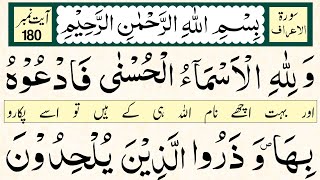 سورة الاعراف
بِسْمِ اللهِ الرَّحْمٰنِ الرَّحِيْمِ
آیت نمبر 180
وَلِلّٰهِ الْاَسْمَآءُ الْحُسْنٰى فَادْعُوْهُ
اور بہت اچھے نام اللہ ہی کے ہیں تو اسے پکارو
بِهَا ۪ وَذَرُوا الَّذِيْنَ يُلْحِدُوْنَ